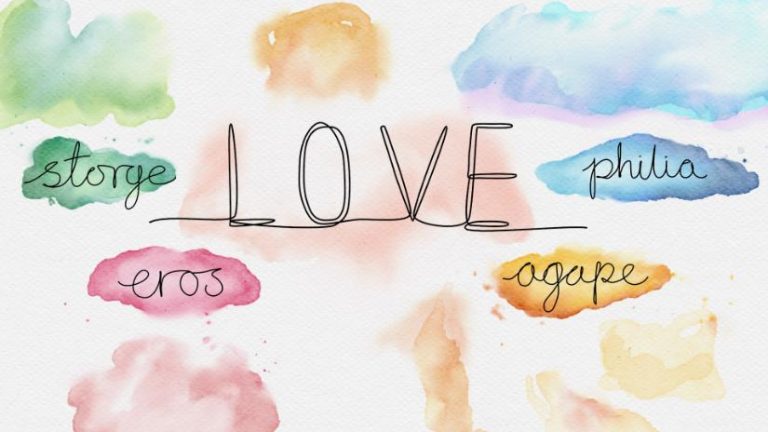 LOVE
storge
philia
eros
agape